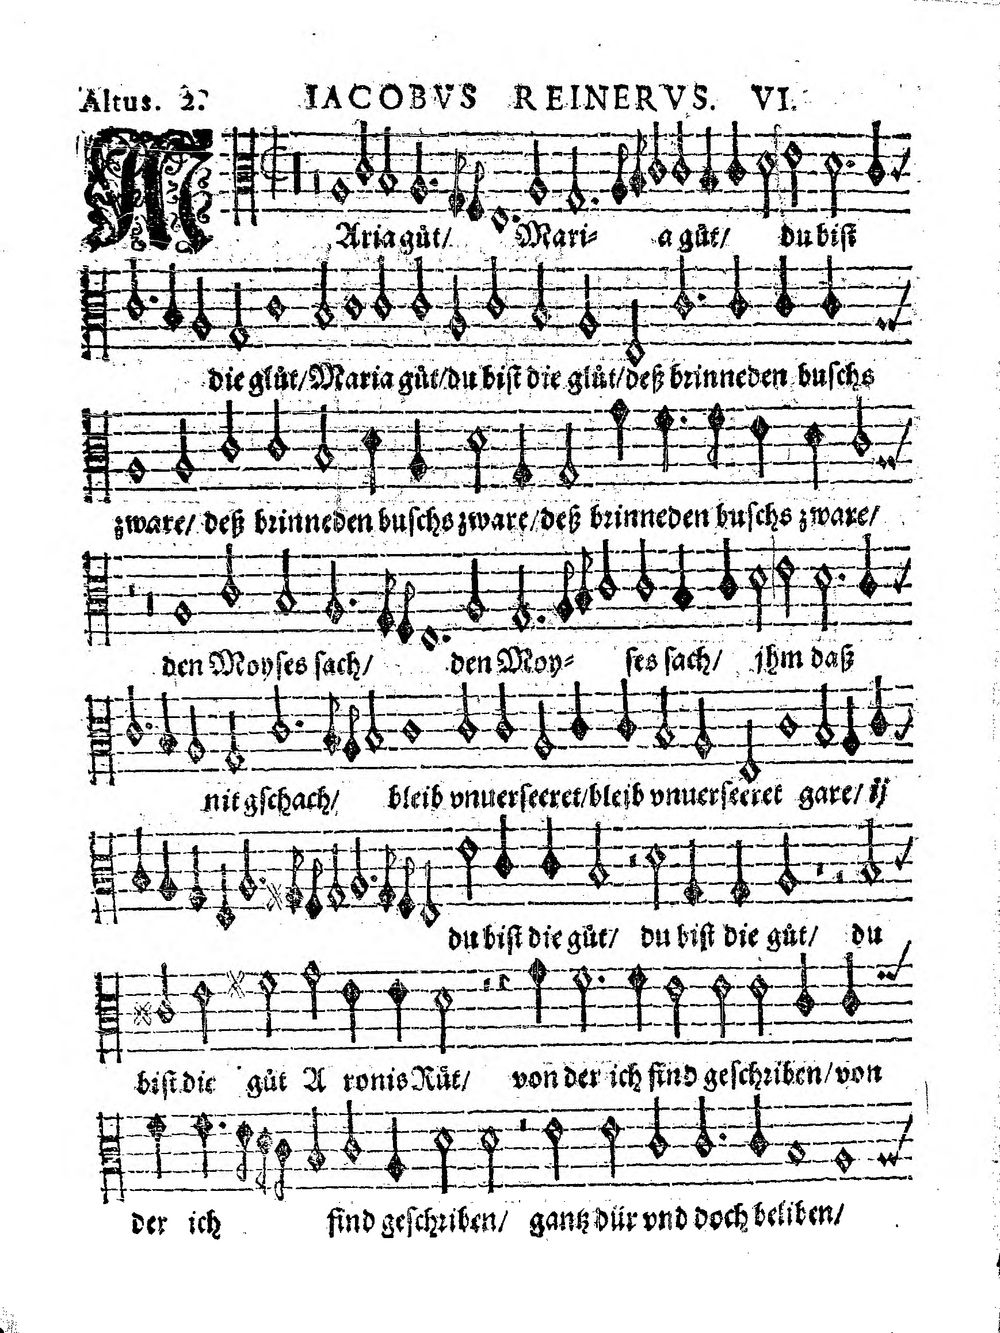 Altus. 2. IACOBVS REINERVS. VI.
MAria gůt/ Mari- a gůt/ du bist
die glůt/Maria gůt/du bist die glůt/deß brinneden buschs
zware/ deß brinneden buschs zware/deß brinneden buschs zware/
den Moyses sach/ den Moy- ses sach/ jhm daß
nit gschach/ bleib vnuerseeret/bleib vnuerseeret gare/ ij
du bist die gůt/ du bist die gůt/ du
bist die gůt A ronis Růt/ von der ich find geschriben/von
der ich find geschriben/ gantz dür vnd doch beliben/